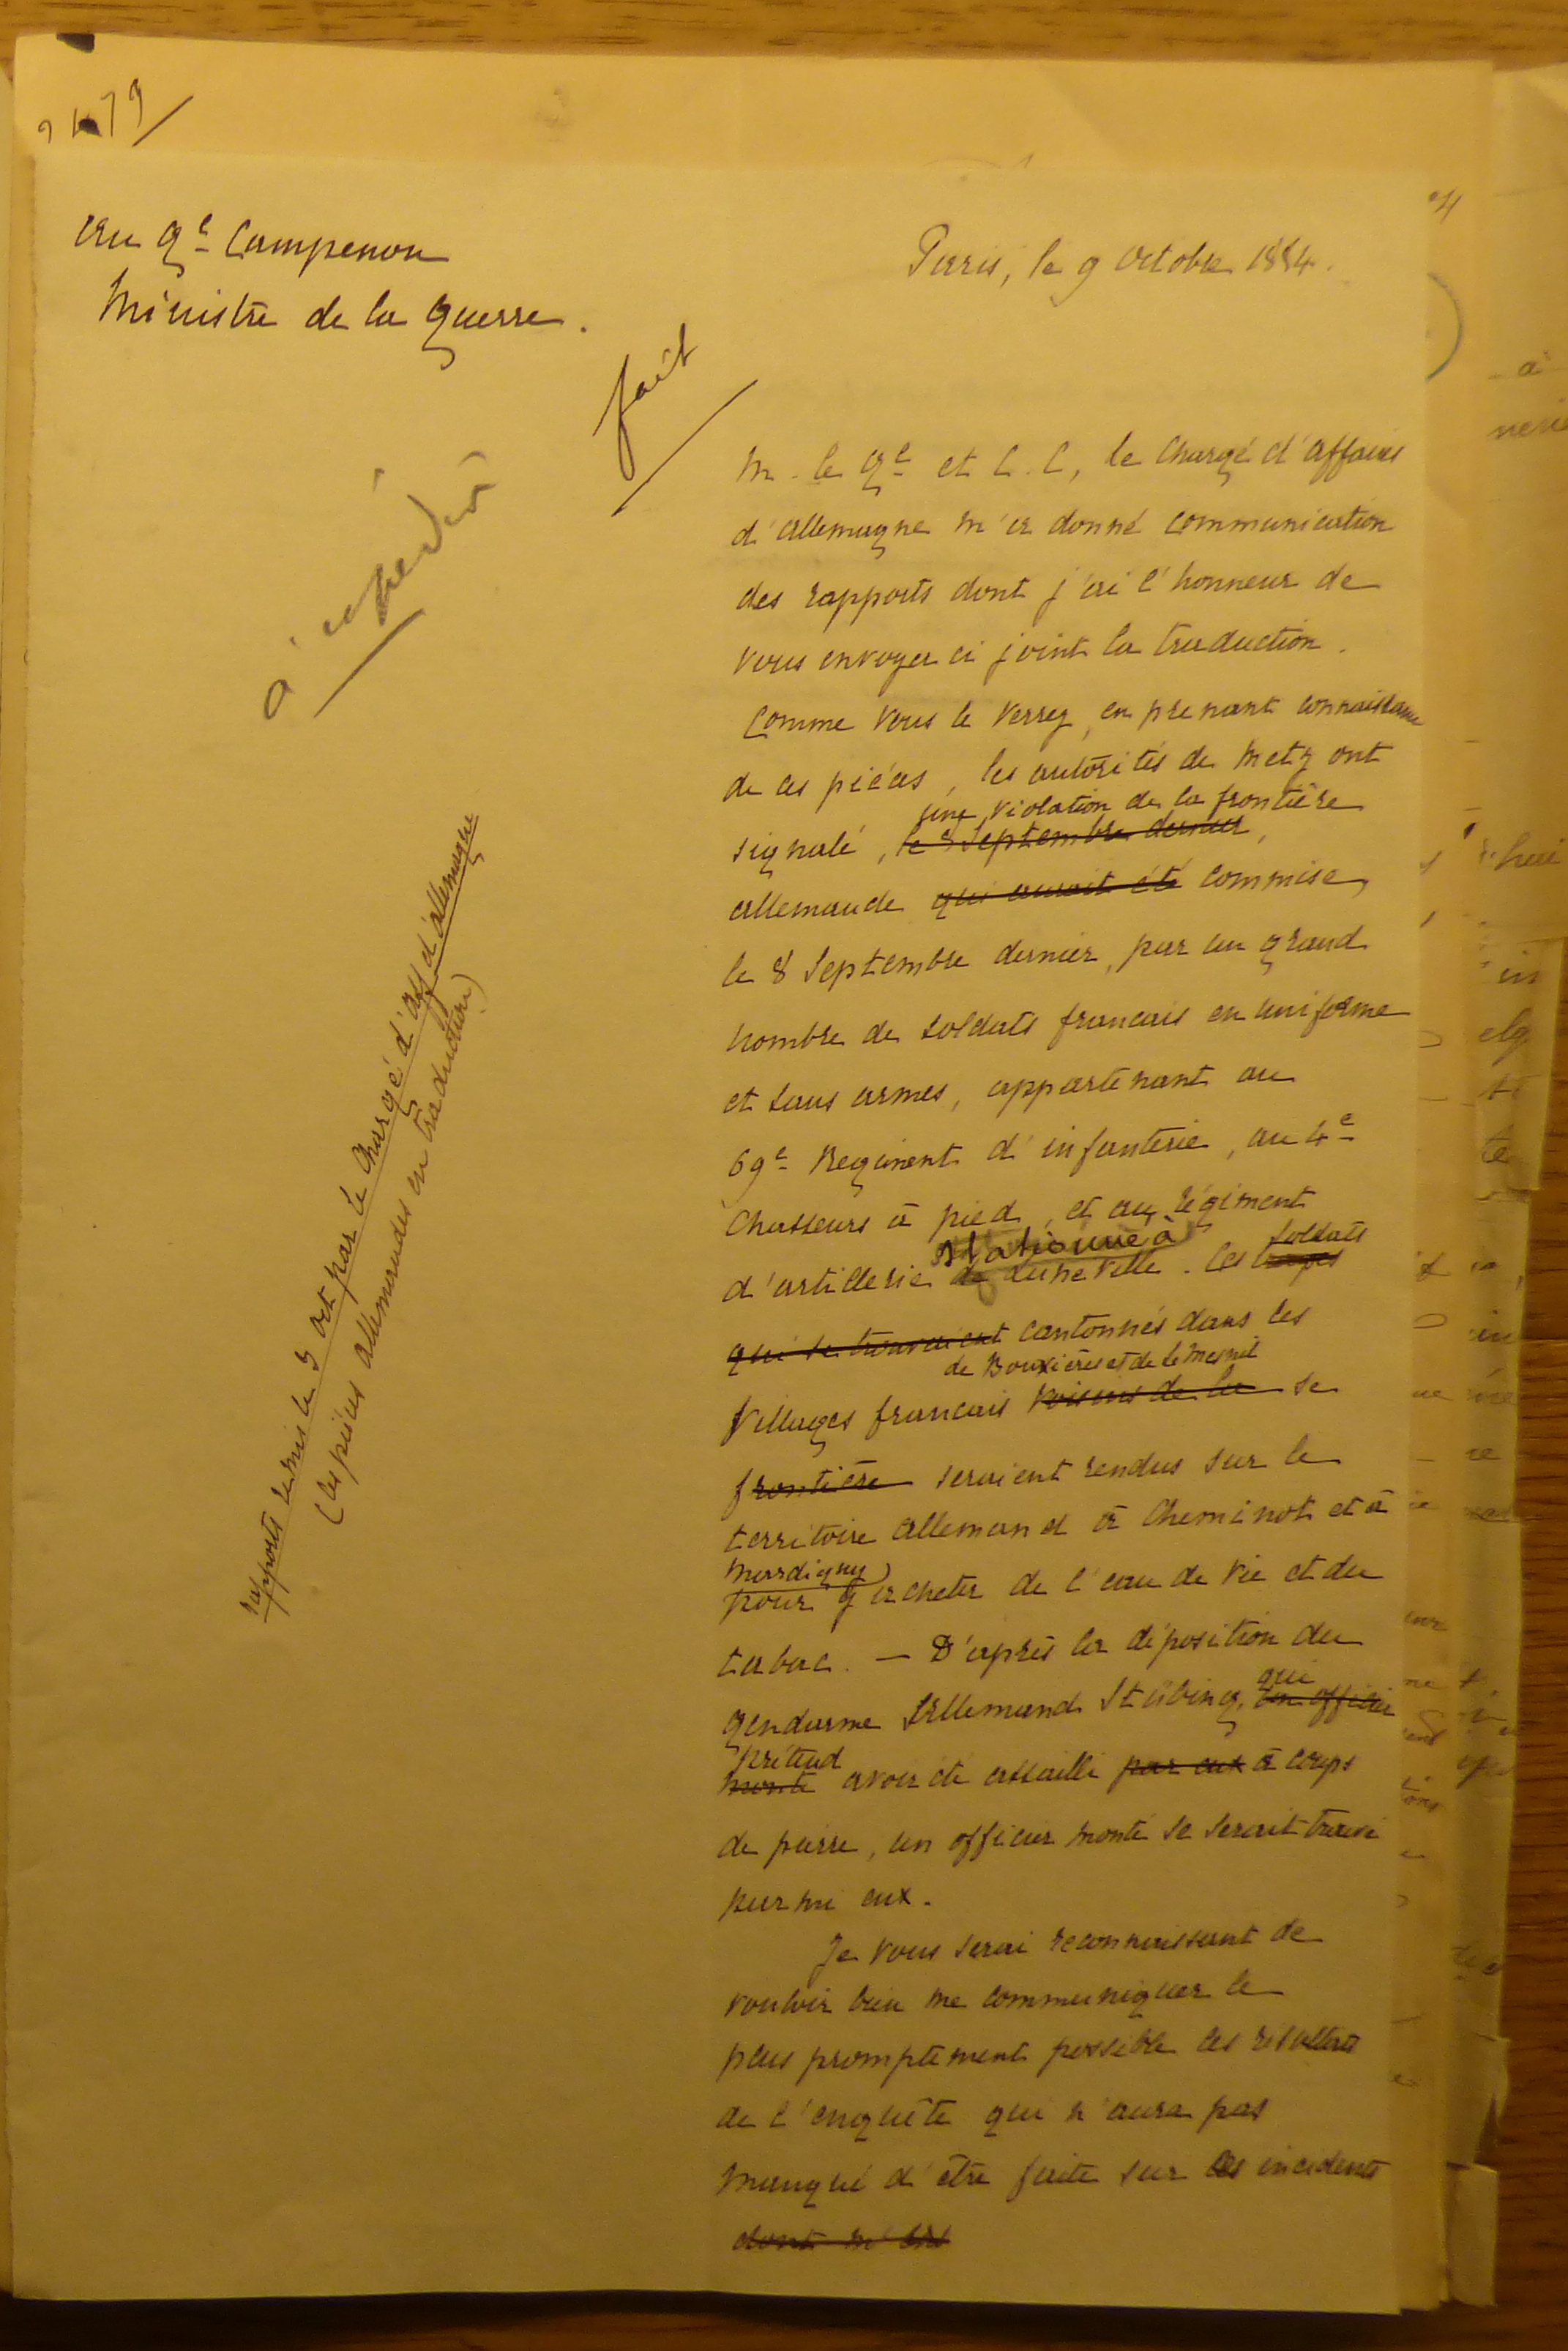 Au Gal Campenon
Ministre de la guerre.
Paris, le 9 octobre 1884.
fait
à expédier
rapports remis le 3 oct par le Chargé d'aff d'allemagne
(les pièces allemandes en traduction)
M. le Gal et C. C, le Chargé d'affaires
d'allemagne m'a donné communication
des rapports dont j'ai l'honneur de
vous envoyer ci joint la traduction.
Comme vous le verrez, en prenant connaissance
de ces pièces, les autorités de Metz ont
une violation de la frontière
signalé, le 8 Septembre dernier,
allemande qui aurait été commise,
le 8 Septembre dernier, par un grand
nombre de soldats francais en uniforme
et sans armes, appartenant au
69e Regiment d'infanterie, au 4e
Chasseurs à pied, et au régiment
stationné à soldats
d'artillerie de Luneville. Ces
qui se trouvaient cantonnés dans les
de Bouxières et de le Mesnil
villages francais voisins de la se
frontière seraient rendus sur le
territoire allemand à Cheminot et à
Mardigny
pour y acheter de l'eau de vie et du
tabac. — D'après la déposition du
qui
gendarme allemand Stübing, un officier
prétend
monté avoir été assailli par eux à coups
de pierre, un officier monté se serait trouvé
parmi eux.
Je vous serai reconnaissant de
vouloir bien me communiquer le
plus promptement possible les résultats
de l'enquête qui n'aura pas
manqué d'être faite sur ces incidents
dont m'